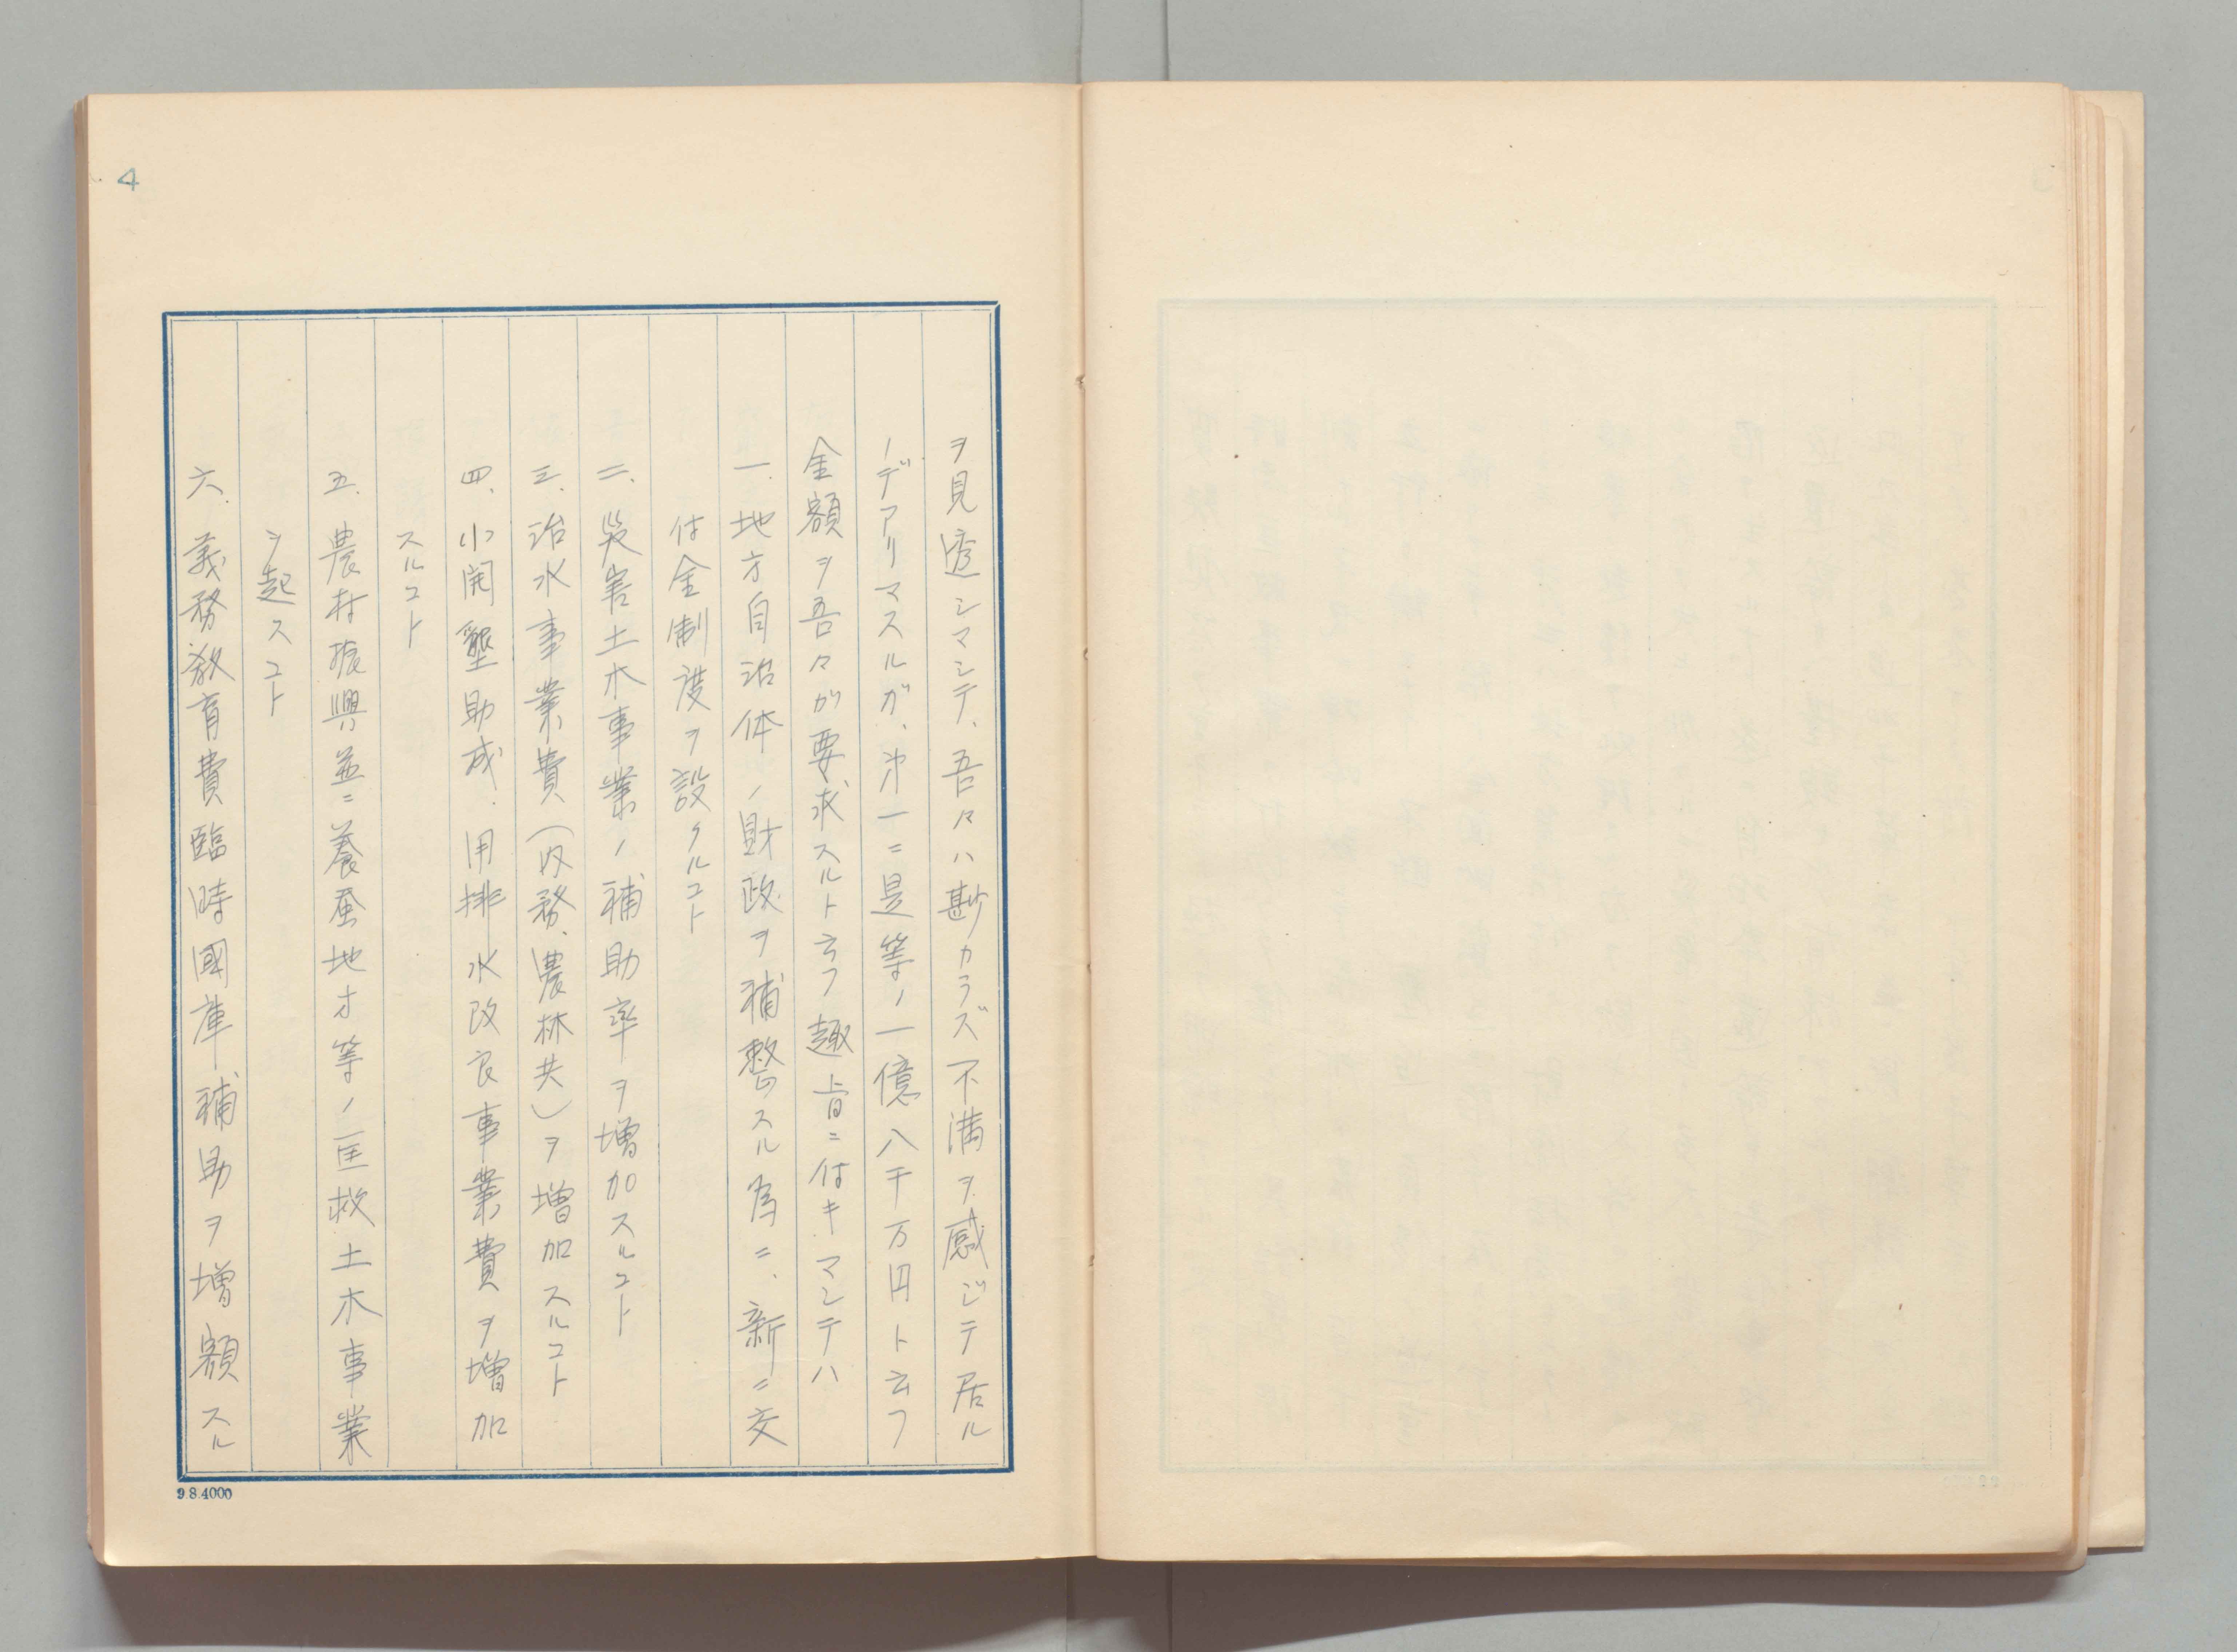 4
ヲ見透シマシテ、吾々ハ尠カラズ不満ヲ感ジテ居ル
ノデアリマスルガ、第一ニ是等ノ一億八千万円ト云フ
金額ヲ吾々ガ要求スルト云フ趣旨ニ付キマシテハ
一、地方自治体ノ財政ヲ補整スル為ニ、新ニ交
付金制度ヲ設クルコト
二、災害土木事業ノ補助率ヲ増加スルコト
三、治水事業費(内務、農林共)ヲ増加スルコト
四、小開墾助成、用排水改良事業費ヲ増加
スルコト
五、農村振興並ニ養蚕地方等ノ匡救土木事業
ヲ起スコト
六、義務教育費臨時國庫補助ヲ増額スル
9.8.4000